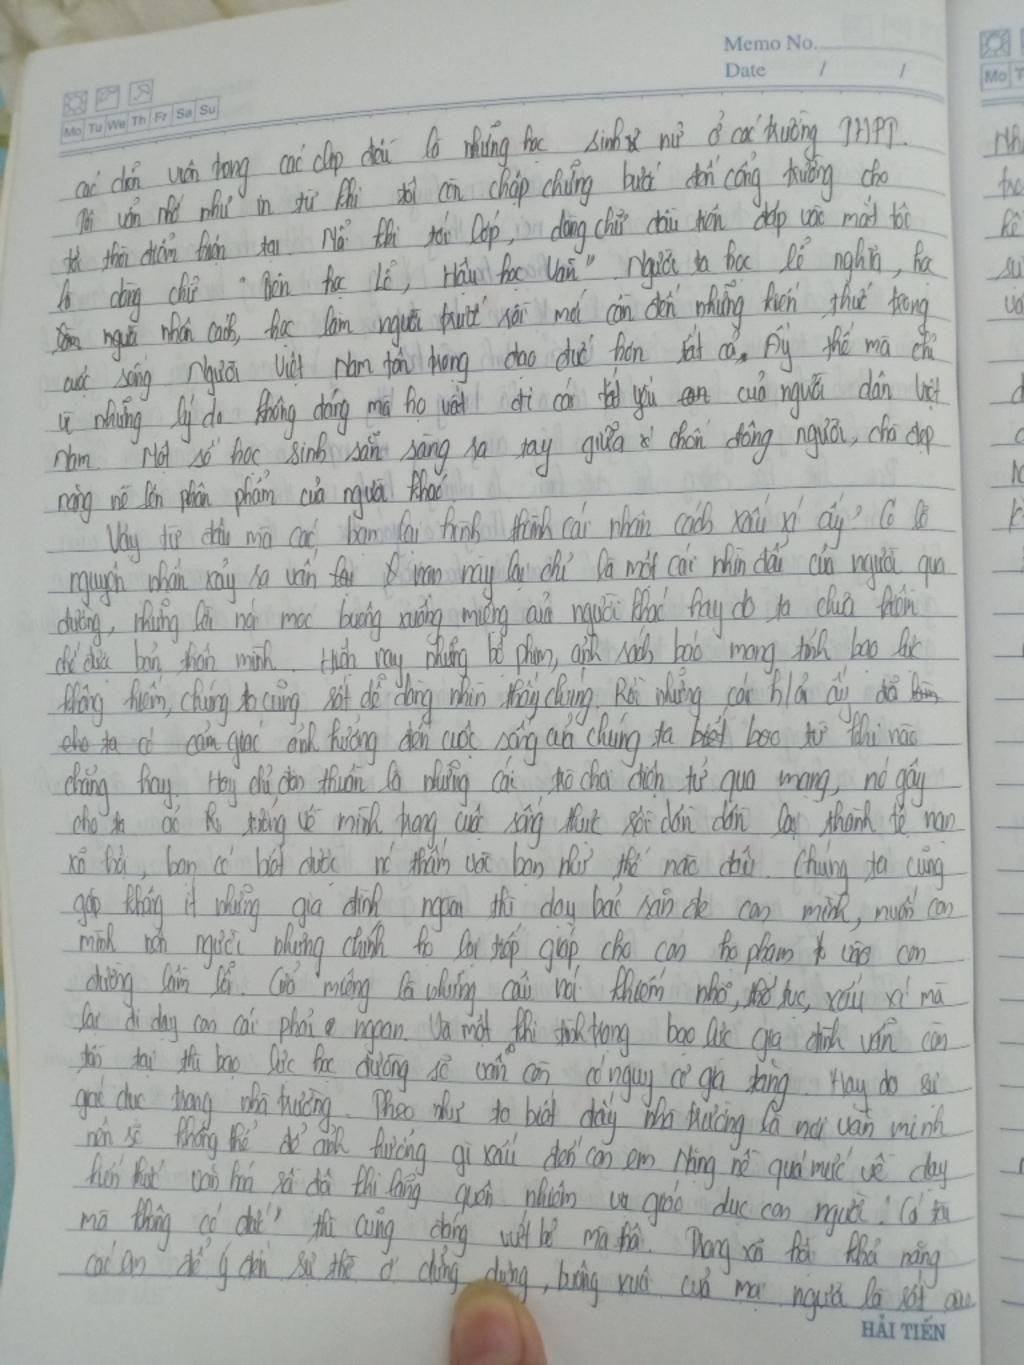 Memo No.
Date / /
Mo Tu We Th Fr Sa Su
Mo T
các diễn viên trong các clip đấu là những học sinh nữ ở các trường THPT.
Tôi vẫn nhớ như in từ khi tôi còn chập chững bước đến cổng trường cho
tới thời điểm hiện tại. Mỗi khi tới lớp, dòng chữ đầu tiên đập vào mắt tôi
là dòng chữ "Tiên học Lễ, Hậu học Văn". Người ta học lễ nghĩa, học
người nhân cách, học làm người trước rồi mới cần đến những kiến thức trong
cuộc sống. Người Việt Nam tôn trọng đạo đức hơn tất cả. Ấy thế mà chỉ
vì những lý do không đáng mà họ vứt đi cái tất yếu của người dân Việt
Nam. Một số học sinh sẵn sàng ra tay giữa chốn đông người, chà đạp
nặng nề lên phần phẩm của người khác
Vậy từ đâu mà các bạn lại hình thành cái nhân cách xấu xí ấy? Có lẽ
nguyên nhân xảy ra vấn nạn này lại chỉ là một cái nhìn đấu của người qua
đường, những lời nói mọc buông xuống miệng của người khác hay do ta chưa kiềm
chế được bản thân mình. Hiện nay những bộ phim, ảnh sách báo mang tính bạo lực
không hiếm, chúng ta cũng rất dễ dàng nhìn thấy chúng. Rồi những cái h/ả ấy đã
có cảm giác ảnh hưởng đến cuộc sống của chúng ta biết bao từ khi nào
chẳng hay. Hay chỉ đơn thuần là những cái trò chơi điện tử qua mạng, nó gây
cho ta ảo tưởng về mình trong cuộc sống thực rồi dần dần lại thành tệ nạn
xã hội, bạn có biết được nó thấm vào bạn như thế nào đâu. Chúng ta cũng
gặp không ít những gia đình ngoài thì dạy bảo sẵn đe con mình, muốn con
mình nên người nhưng chính họ lại tiếp giúp cho con họ phạm vào con
đường lầm lỗi. Cửa miệng là những câu nói khiếm nhã, thô tục, xấu xí mà
lại đi dạy con cái phải ngoan. Và một khi tình trạng bạo lực gia đình vẫn còn
tồn tại thì bạo lực học đường sẽ vẫn còn có nguy cơ gia tăng. Hay do sự
giáo dục trong nhà trường. Theo như ta biết đấy nhà trường là nơi văn minh
nên sẽ không thể để ảnh hưởng gì xấu đến con em. Nặng nề quá mức về dạy
kiến thức văn hoá rồi đôi khi lãng quên nhiệm vụ giáo dục con người. "Có tài
mà không có đức" thì cũng đáng vứt bỏ mà thôi. Trong xã hội khả năng
các em để ý đến sự thờ ơ dửng dưng, buông xuôi của mọi người là rất cao
HẢI TIẾN